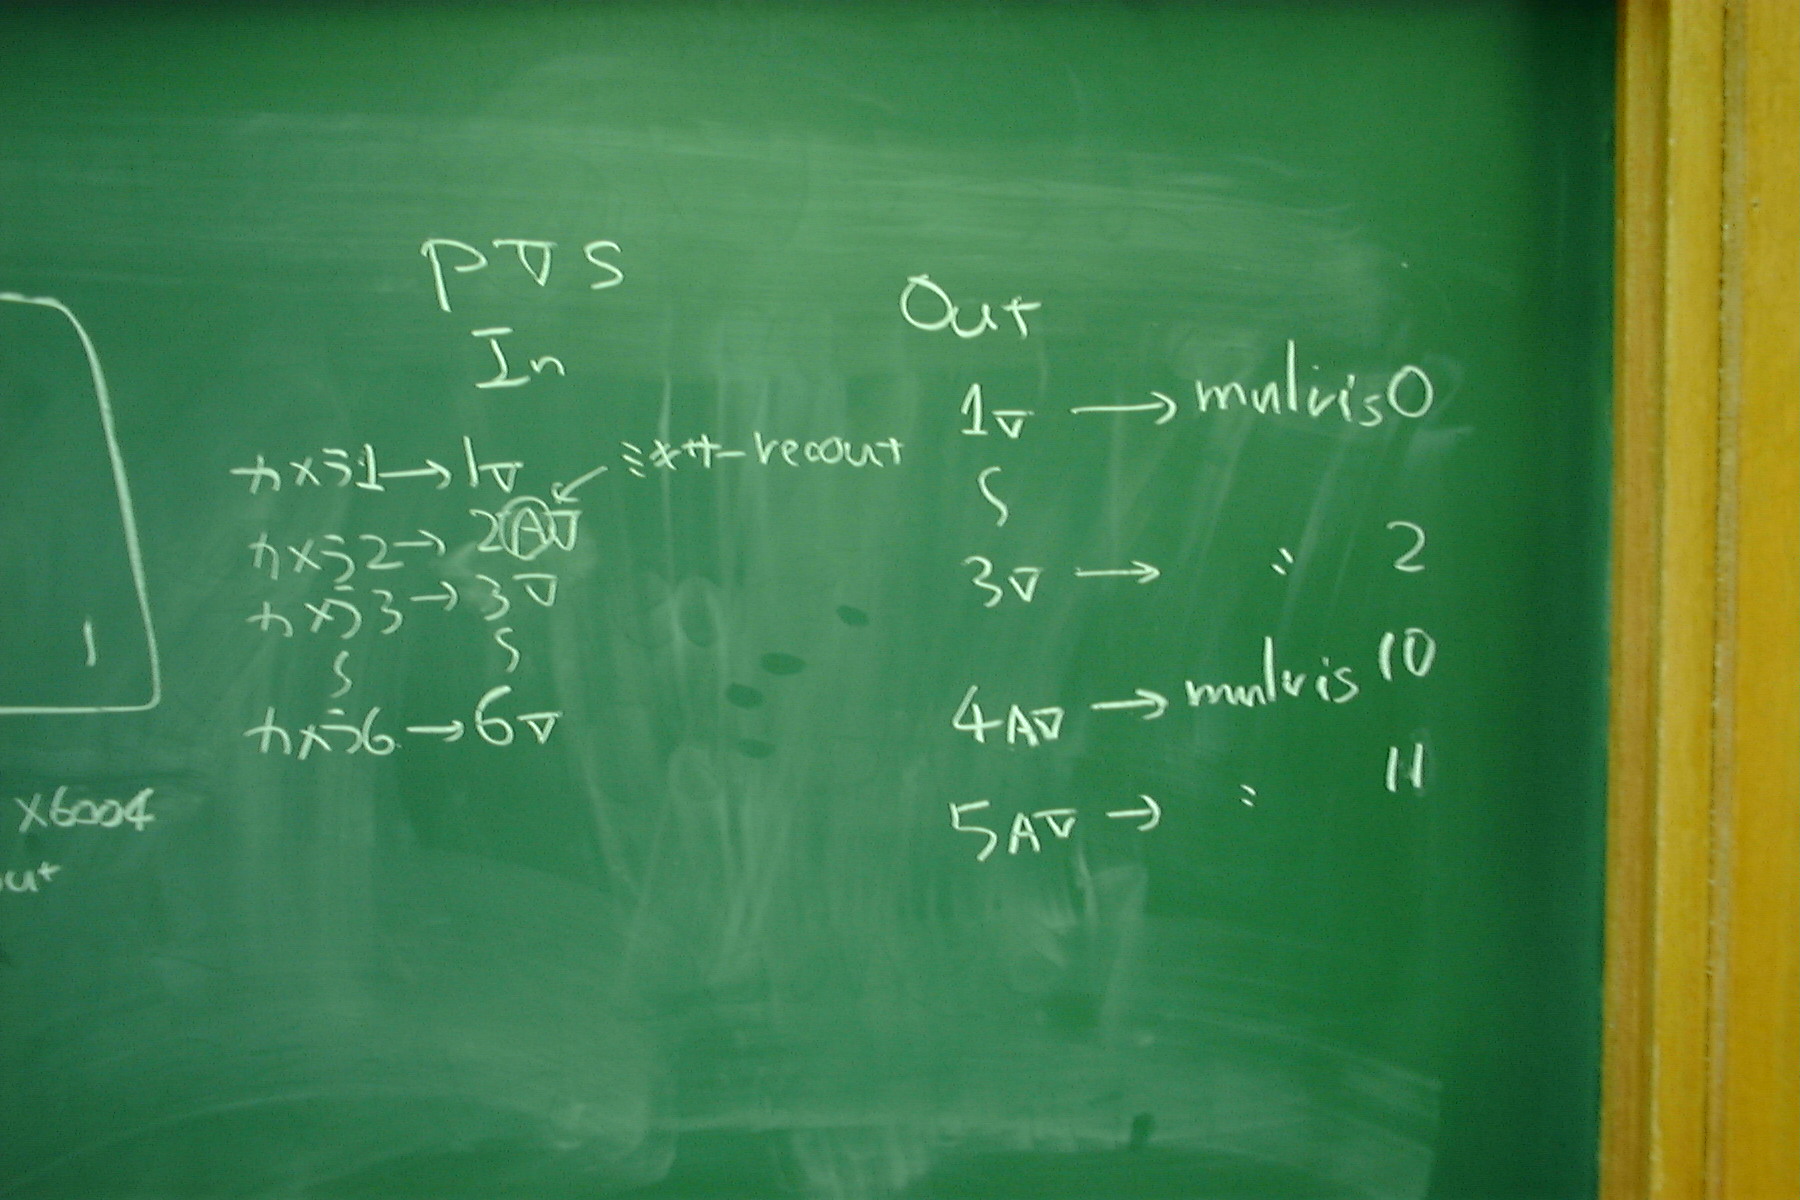 P▽S
In
カメラ1→1▽
ミキサーrecout
カメラ2→2A▽
カメラ3→3▽
S S
カメラ6→6▽
Out
1▽→mulvis0
S
3▽→ 〃 2
4A▽→mulvis10
5A▽→ 〃 11
1
X6004
ut